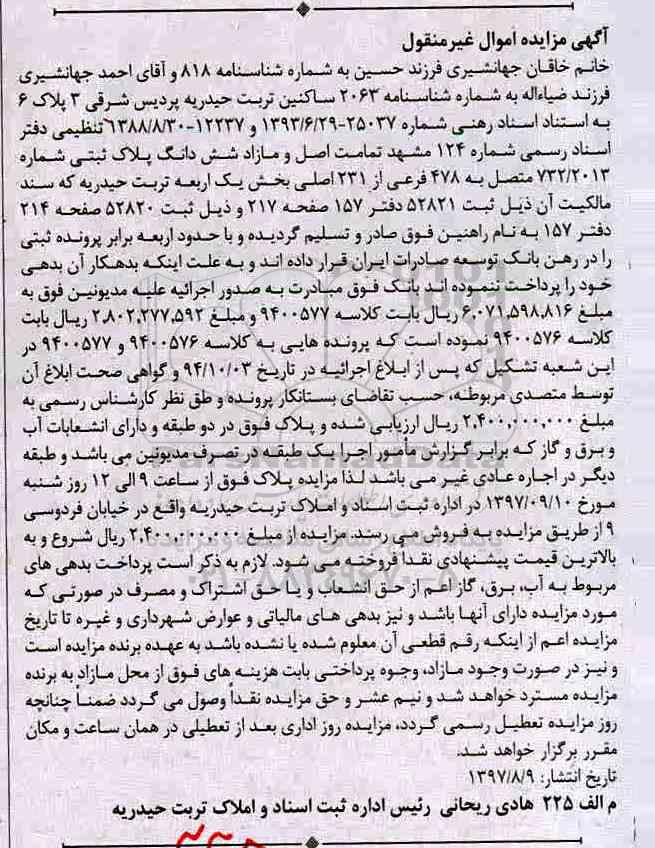 آگهی مزایده اموال غیرمنقول
خانم خاقان جهانشیری فرزند حسین به شماره شناسنامه ۸۱۸ و آقای احمد جهانشیری
فرزند ضیاءاله به شماره شناسنامه ۲۰۶۳ ساکنین تربت حیدریه پردیس شرقی ۳ پلاک ۶
به استناد اسناد رهنی شماره ۲۵۰۳۷-۱۳۹۳/۶/۲۹ و ۱۲۲۳۷-۱۳۸۸/۸/۳۰ تنظیمی دفتر
اسناد رسمی شماره ۱۲۴ مشهد تمامت اصل و مازاد شش دانگ پلاک ثبتی شماره
۷۳۲/۲۰۱۳ متصل به ۴۷۸ فرعی از ۲۳۱ اصلی بخش یک اربعه تربت حیدریه که سند
مالکیت آن ذیل ثبت ۵۲۸۲۱ دفتر ۱۵۷ صفحه ۲۱۷ و ذیل ثبت ۵۲۸۲۰ صفحه ۲۱۴
دفتر ۱۵۷ به نام راهنین فوق صادر و تسلیم گردیده و با حدود اربعه برابر پرونده ثبتی
را در رهن بانک توسعه صادرات ایران قرار داده اند و به علت اینکه بدهکار آن بدهی
خود را پرداخت ننموده اند بانک فوق مبادرت به صدور اجرائیه علیه مدیونین فوق به
مبلغ ۶,۰۷۱,۵۹۸,۸۱۶ ریال بابت کلاسه ۹۴۰۰۵۷۷ و مبلغ ۲,۸۰۲,۲۷۷,۵۹۲ ریال بابت
کلاسه ۹۴۰۰۵۷۶ نموده است که پرونده هایی به کلاسه ۹۴۰۰۵۷۶ و ۹۴۰۰۵۷۷ در
این شعبه تشکیل که پس از ابلاغ اجرائیه در تاریخ ۹۴/۱۰/۰۳ و گواهی صحت ابلاغ آن
توسط متصدی مربوطه، حسب تقاضای بستانکار پرونده و طق نظر کارشناس رسمی به
مبلغ ۲,۴۰۰,۰۰۰,۰۰۰ ریال ارزیابی شده و پلاک فوق در دو طبقه و دارای انشعابات آب
و برق و گاز که برابر گزارش مأمور اجرا یک طبقه در تصرف مدیونین می باشد و طبقه
دیگر در اجاره عادی غیر می باشد لذا مزایده پلاک فوق از ساعت ۹ الی ۱۲ روز شنبه
مورخ ۱۳۹۷/۰۹/۱۰ در اداره ثبت اسناد و املاک تربت حیدریه واقع در خیابان فردوسی
۹ از طریق مزایده به فروش می رسد. مزایده از مبلغ ۲,۴۰۰,۰۰۰,۰۰۰ ریال شروع و به
بالاترین قیمت پیشنهادی نقداً فروخته می شود. لازم به ذکر است پرداخت بدهی های
مربوط به آب، برق، گاز اعم از حق انشعاب و یا حق اشتراک و مصرف در صورتی که
مورد مزایده دارای آنها باشد و نیز بدهی های مالیاتی و عوارض شهرداری و غیره تا تاریخ
مزایده اعم از اینکه رقم قطعی آن معلوم شده یا نشده باشد به عهده برنده مزایده است
و نیز در صورت وجود مازاد، وجوه پرداختی بابت هزینه های فوق از محل مازاد به برنده
مزایده مسترد خواهد شد و نیم عشر و حق مزایده نقداً وصول می گردد ضمناً چنانچه
روز مزایده تعطیل رسمی گردد، مزایده روز اداری بعد از تعطیلی در همان ساعت و مکان
مقرر برگزار خواهد شد.
تاریخ انتشار: ۱۳۹۷/۸/۹
م الف ۲۲۵ هادی ریحانی رئیس اداره ثبت اسناد و املاک تربت حیدریه